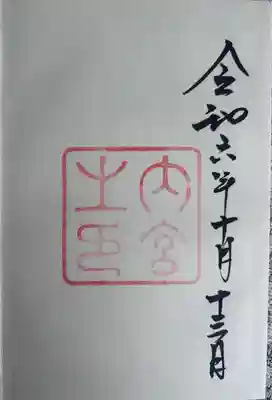 令和六年十月十三日
内宮
之印